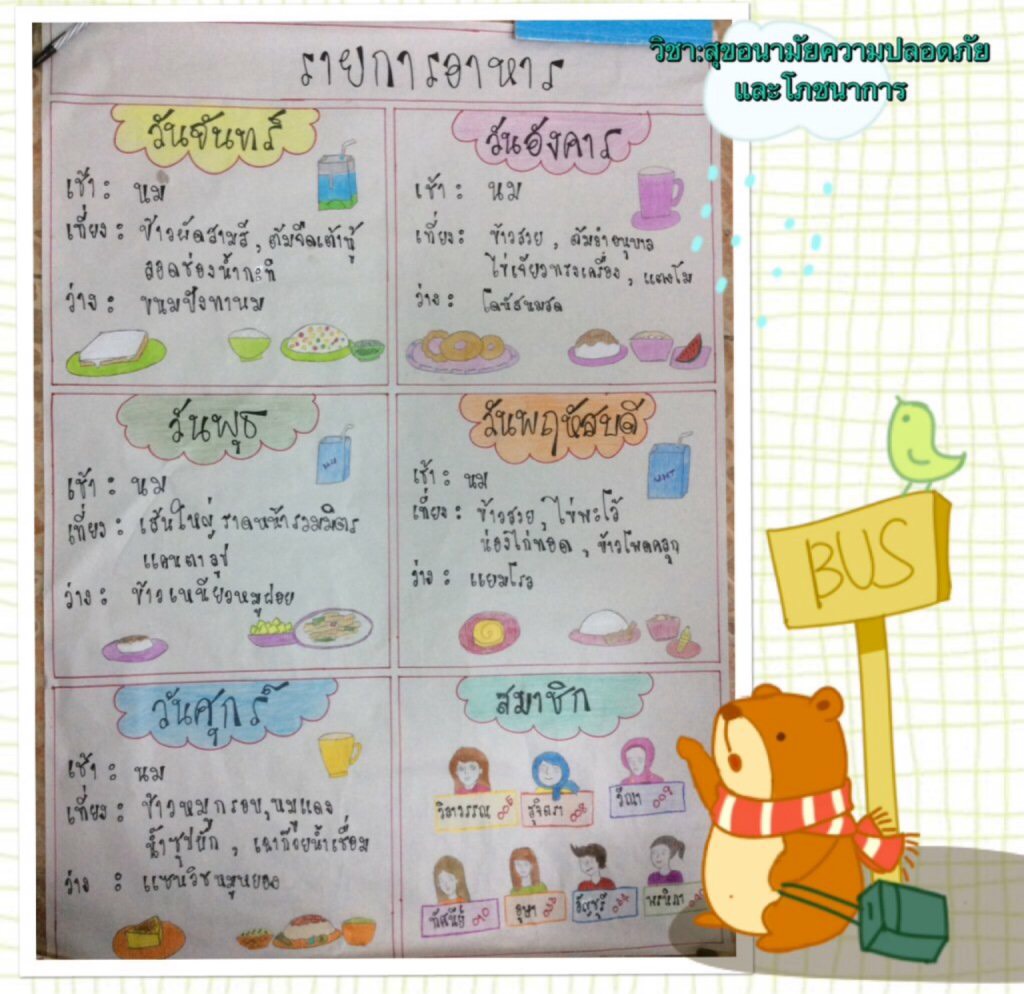 วิชา:สุขอนามัยความปลอดภัย
และโภชนาการ
รายการอาหาร
วันจันทร์
เช้า : นม
เที่ยง : ข้าวผัดสามสี , ต้มจืดเต้าหู้
ลอดช่องน้ำกะทิ
ว่าง : ขนมปังทานม
วันอังคาร
เช้า : นม
เที่ยง : ข้าวสวย , ต้มยำอนุบาล
ไข่เจียวทรงเครื่อง , แตงโม
ว่าง : โดนัสนมสด
วันพุธ
เช้า : นม
เที่ยง : เส้นใหญ่ราดหน้ารวมมิตร
แคนตาลูป
ว่าง : ข้าวเหนียวหมูฝอย
วันพฤหัสบดี
เช้า : นม
เที่ยง : ข้าวสวย , ไข่พะโล้
น่องไก่ทอด , ข้าวโพดคลุก
ว่าง : แยมโรล
UHT
วันศุกร์
เช้า : นม
เที่ยง : ข้าวหมูกรอบ , หมูแดง
น้ำซุปผัก , เฉาก๊วยน้ำเชื่อม
ว่าง : แซนวิชหมูหยอง
สมาชิก
วิลาวรรณ 005
สุจิตรา 008
วีณา 009
ทัศนีย์ 010
อุษา
BUS